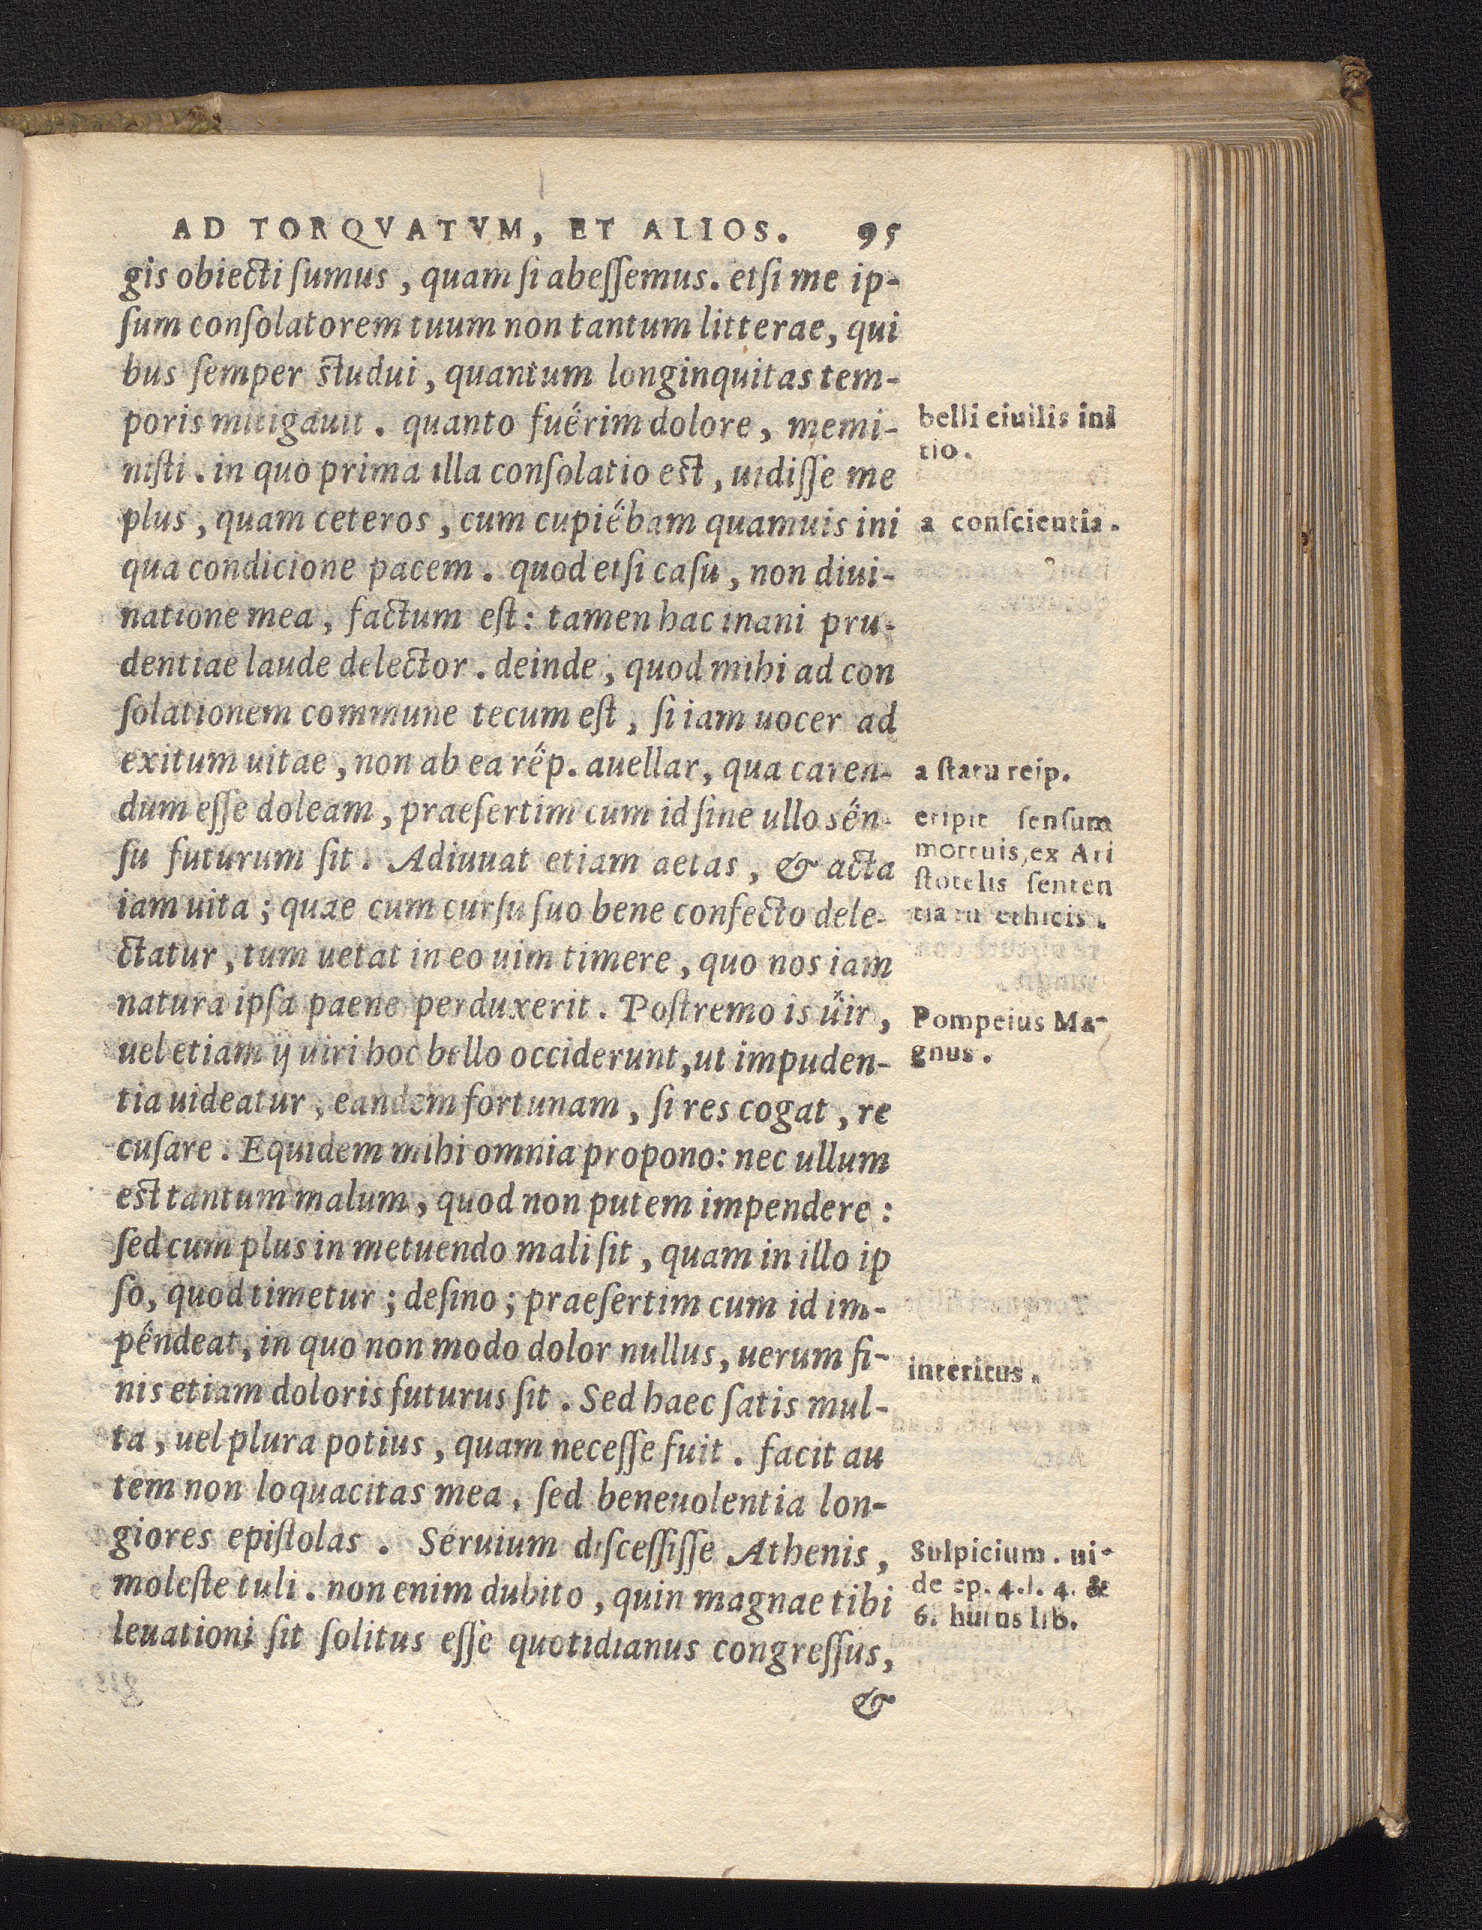 AD TORQVATVM, ET ALIOS. 95
gis obiecti ſumus, quam ſi abeſſemus. etſi me ip-
ſum conſolatorem tuum non tantum litterae, qui
bus ſemper ſtudui, quantum longinquitas tem-
poris mitigauit. quanto fuërim dolore, memi-
niſti. in quo prima illa conſolatio eſt, uidiſſe me
plus, quam ceteros, cum cupiëbam quamuis ini
qua condicione pacem. quod etſi caſu, non diui-
natione mea, factum eſt: tamen hac inani pru-
dentiae laude delector. deinde, quod mihi ad con
ſolationem commune tecum eſt, ſi iam uocer ad
exitum uitae, non ab ea rëp. auellar, qua caren-
dum eſſe doleam, praeſertim cum id ſine ullo sën-
ſu futurum ſit. Adiuuat etiam aetas, & acta
iam uita; quae cum curſu ſuo bene confecto dele-
ctatur, tum uetat in eo uim timere, quo nos iam
natura ipſa paene perduxerit. Poſtremo is üir,
uel etiam ij uiri hoc bello occiderunt, ut impuden-
tia uideatur, eandem fortunam, ſi res cogat, re
cuſare. Equidem mihi omnia propono: nec ullum
eſt tantum malum, quod non putem impendere:
ſed cum plus in metuendo mali ſit, quam in illo ip
ſo, quod timetur; deſino; praeſertim cum id im-
pëndeat, in quo non modo dolor nullus, uerum fi-
nis etiam doloris futurus ſit. Sed haec ſatis mul-
ta, uel plura potius, quam neceſſe fuit. facit au
tem non loquacitas mea, ſed beneuolentia lon-
giores epiſtolas. Séruium diſceſſiſſe Athenis,
moleſte tuli. non enim dubito, quin magnae tibi
leuationi ſit ſolitus eſſe quotidianus congreſſus,
&
belli ciuilis ini
tio.
a conſcientia.
a ſtatu reip.
eripit ſenſum
mortuis, ex Ari
ſtotelis ſenten
tia in ethicis.
Pompeius Ma-
gnus.
interitus.
Sulpicium. ui-
de ep. 4. l. 4. &
6. huius lib.